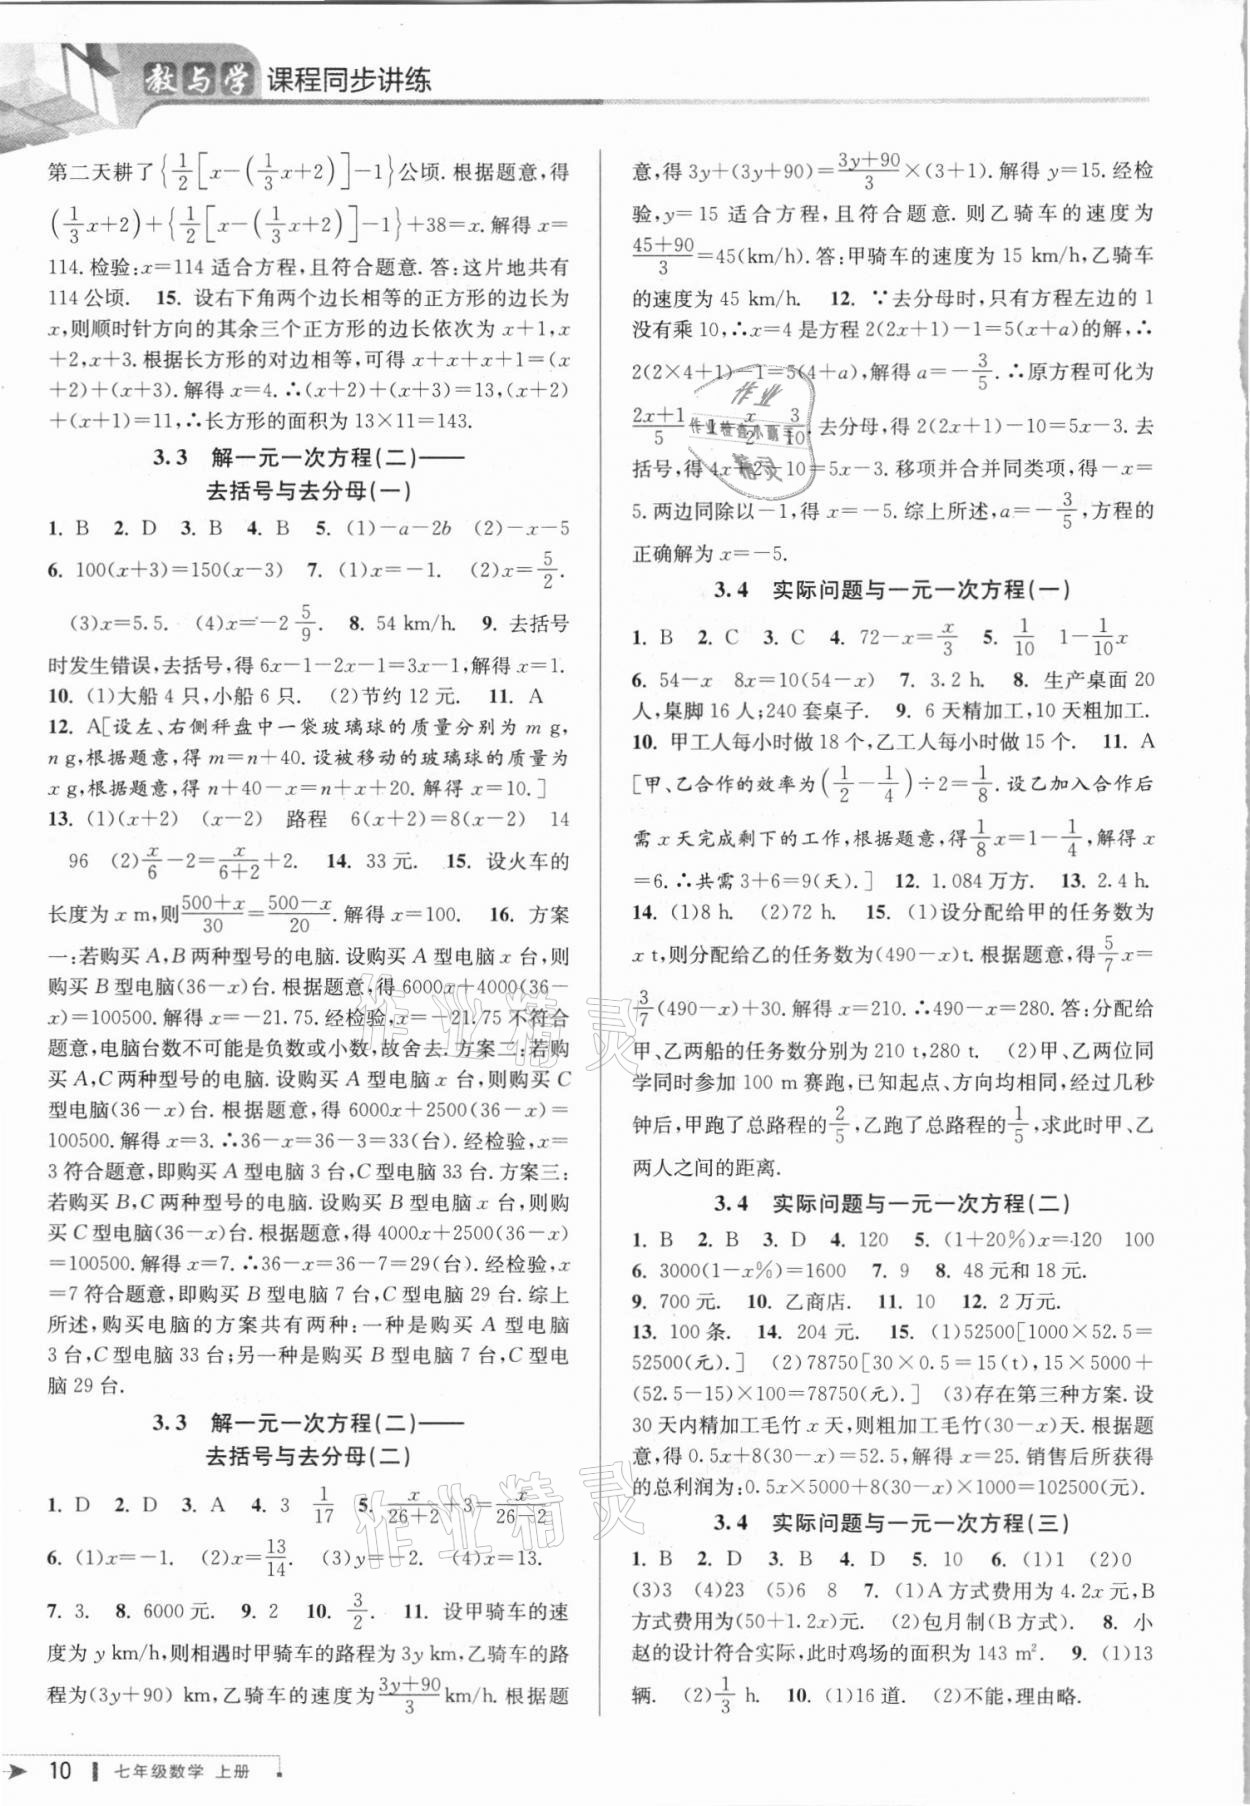 教与学 课程同步讲练
第二天耕了{1/2[x-(1/3x+2)]-1}公顷.根据题意,得
(1/3x+2)+{1/2[x-(1/3x+2)]-1}+38=x.解得 x=
114.检验:x=114 适合方程,且符合题意.答:这片地共有
114公顷. 15. 设右下角两个边长相等的正方形的边长为
x,则顺时针方向的其余三个正方形的边长依次为 x+1,x
+2,x+3.根据长方形的对边相等,可得 x+x+x+1=(x
+2)+(x+3).解得 x=4.∴(x+2)+(x+3)=13,(x+2)
+(x+1)=11,∴长方形的面积为 13×11=143.
3.3 解一元一次方程(二)——
去括号与去分母(一)
1. B 2. D 3. B 4. B 5. (1)-a-2b (2)-x-5
6. 100(x+3)=150(x-3) 7. (1)x=-1. (2)x=5/2.
(3)x=5.5. (4)x=-2 5/9. 8. 54 km/h. 9. 去括号
时发生错误,去括号,得 6x-1-2x-1=3x-1,解得 x=1.
10. (1)大船 4 只,小船 6 只. (2)节约 12 元. 11. A
12. A[设左、右侧秤盘中一袋玻璃球的质量分别为 m g,
n g,根据题意,得 m=n+40.设被移动的玻璃球的质量为
x g,根据题意,得 n+40-x=n+x+20.解得 x=10.]
13. (1)(x+2) (x-2) 路程 6(x+2)=8(x-2) 14
96 (2)x/6-2=x/(6+2)+2. 14. 33 元. 15. 设火车的
长度为 x m,则(500+x)/30=(500-x)/20.解得 x=100. 16. 方案
一:若购买 A,B 两种型号的电脑.设购买 A 型电脑 x 台,则
购买 B 型电脑(36-x)台.根据题意,得 6000x+4000(36-
x)=100500.解得 x=-21.75.经检验,x=-21.75 不符合
题意,电脑台数不可能是负数或小数,故舍去.方案二:若购
买 A,C 两种型号的电脑.设购买 A 型电脑 x 台,则购买 C
型电脑(36-x)台.根据题意,得 6000x+2500(36-x)=
100500.解得 x=3.∴36-x=36-3=33(台).经检验,x=
3 符合题意,即购买 A 型电脑 3 台,C 型电脑 33 台.方案三:
若购买 B,C 两种型号的电脑.设购买 B 型电脑 x 台,则购
买 C 型电脑(36-x)台.根据题意,得 4000x+2500(36-x)
=100500.解得 x=7.∴36-x=36-7=29(台).经检验,x
=7 符合题意,即购买 B 型电脑 7 台,C 型电脑 29 台.综上
所述,购买电脑的方案共有两种:一种是购买 A 型电脑
3 台,C 型电脑 33 台;另一种是购买 B 型电脑 7 台,C 型电
脑 29 台.
3.3 解一元一次方程(二)——
去括号与去分母(二)
1. D 2. D 3. A 4. 3 1/17 5. x/(26+2)+3=x/(26-2)-3
6. (1)x=-1. (2)x=13/14. (3)y=-2. (4)x=13.
7. 3. 8. 6000 元. 9. 2 10. 3/2. 11. 设甲骑车的速
度为 y km/h,则相遇时甲骑车的路程为 3y km,乙骑车的路
程为(3y+90) km,乙骑车的速度为(3y+90)/3 km/h.根据题
意,得 3y+(3y+90)=(3y+90)/3×(3+1).解得 y=15.经检
验,y=15 适合方程,且符合题意.则乙骑车的速度为
(45+90)/3=45(km/h).答:甲骑车的速度为 15 km/h,乙骑车
的速度为 45 km/h. 12. ∵去分母时,只有方程左边的 1
没有乘 10,∴x=4 是方程 2(2x+1)-1=5(x+a)的解,∴
2(2×4+1)-1=5(4+a),解得 a=-3/5.∴原方程可化为
(2x+1)/5-1=x/2-3/10.去分母,得 2(2x+1)-10=5x-3.去
括号,得 4x+2-10=5x-3.移项并合并同类项,得-x=
5.两边同除以-1,得 x=-5.综上所述,a=-3/5,方程的
正确解为 x=-5.
3.4 实际问题与一元一次方程(一)
1. B 2. C 3. C 4. 72-x=x/3 5. 1/10 1-1/10x
6. 54-x 8x=10(54-x) 7. 3.2 h. 8. 生产桌面 20
人,桌脚 16 人;240 套桌子. 9. 6 天精加工,10 天粗加工.
10. 甲工人每小时做 18 个,乙工人每小时做 15 个. 11. A
[甲、乙合作的效率为(1/2-1/4)÷2=1/8.设乙加入合作后
需 x 天完成剩下的工作,根据题意,得1/8x=1-1/4,解得 x
=6.∴共需 3+6=9(天).] 12. 1.084 万方. 13. 2.4 h.
14. (1)8 h. (2)72 h. 15. (1)设分配给甲的任务数为
x t,则分配给乙的任务数为(490-x)t.根据题意,得5/7x=
3/7(490-x)+30.解得 x=210.∴490-x=280.答:分配给
甲、乙两船的任务数分别为 210 t,280 t. (2)甲、乙两位同
学同时参加 100 m 赛跑,已知起点、方向均相同,经过几秒
钟后,甲跑了总路程的2/5,乙跑了总路程的1/5,求此时甲、乙
两人之间的距离.
3.4 实际问题与一元一次方程(二)
1. B 2. B 3. D 4. 120 5. (1+20%)x=120 100
6. 3000(1-x%)=1600 7. 9 8. 48 元和 18 元.
9. 700 元. 10. 乙商店. 11. 10 12. 2 万元.
13. 100 条. 14. 204 元. 15. (1)52500[1000×52.5=
52500(元).] (2)78750[30×0.5=15(t),15×5000+
(52.5-15)×100=78750(元).] (3)存在第三种方案.设
30 天内精加工毛竹 x 天,则粗加工毛竹(30-x)天.根据题
意,得 0.5x+8(30-x)=52.5,解得 x=25.销售后所获得
的总利润为:0.5x×5000+8(30-x)×1000=102500(元).
3.4 实际问题与一元一次方程(三)
1. B 2. D 3. B 4. D 5. 10 6. (1)1 (2)0
(3)3 (4)23 (5)6 8 7. (1)A 方式费用为 4.2x 元,B
方式费用为(50+1.2x)元. (2)包月制(B 方式). 8. 小
赵的设计符合实际,此时鸡场的面积为 143 m². 9. (1)13
辆. (2)1/3 h. 10. (1)16 道. (2)不能,理由略.
作业
作业检查小助手
精灵
作业精灵
作业精灵
10 七年级数学 上册